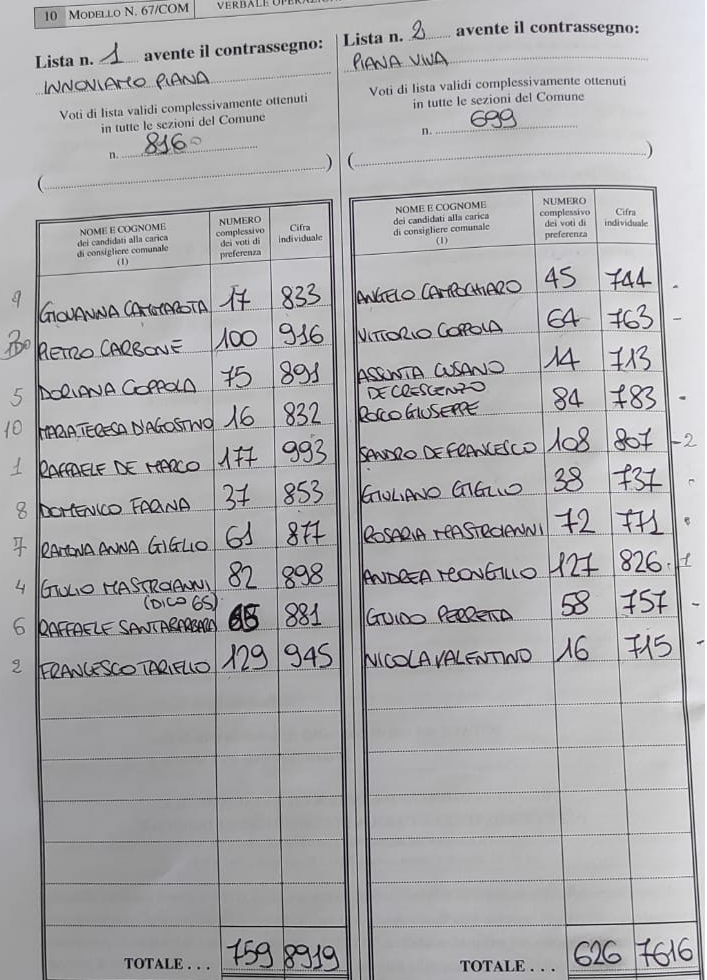 10 MODELLO N. 67/COM
Lista n. 1 avente il contrassegno:
INNOVIAMO PIANA
Voti di lista validi complessivamente ottenuti
in tutte le sezioni del Comune
n. 816
(....)
NOME E COGNOME
dei candidati alla carica
di consigliere comunale
(1)
NUMERO
complessivo
dei voti di
preferenza
Cifra
individuale
9 GIOVANNA CAMMAROTA 17 833
PIETRO CARBONE 100 916
5 DORIANA COPPOLA 75 891
10 MARIA TERESA D'AGOSTINO 16 832
1 RAFFAELE DE MARCO 177 993
8 DOMENICO FARINA 37 853
7 RAMONA ANNA GIGLIO 61 877
4 GIULIO MASTROIANNI 82 898
(DICO 65)
6 RAFFAELE SANTABARBARA 881
2 FRANCESCO TARIELLO 129 945
TOTALE . . . 759 8919
Lista n. 2 avente il contrassegno:
PIANA VIVA
Voti di lista validi complessivamente ottenuti
in tutte le sezioni del Comune
n. 699
(....)
NOME E COGNOME
dei candidati alla carica
di consigliere comunale
(1)
NUMERO
complessivo
dei voti di
preferenza
Cifra
individuale
ANGELO CAMPOCHIARO 45 744
VITTORIO COPPOLA 64 763
ASSUNTA CUSANO 14 713
DE CRESCENZO
ROCCO GIUSEPPE 84 783
SANDRO DE FRANCESCO 108 807 -2
GIULIANO GIGLIO 38 737
ROSARIA MASTROIANNI 72 771
ANDREA MONGILLO 127 826 1
GUIDO PERRETTA 58 757
NICOLA VALENTINO 16 715
TOTALE . . . 626 7616